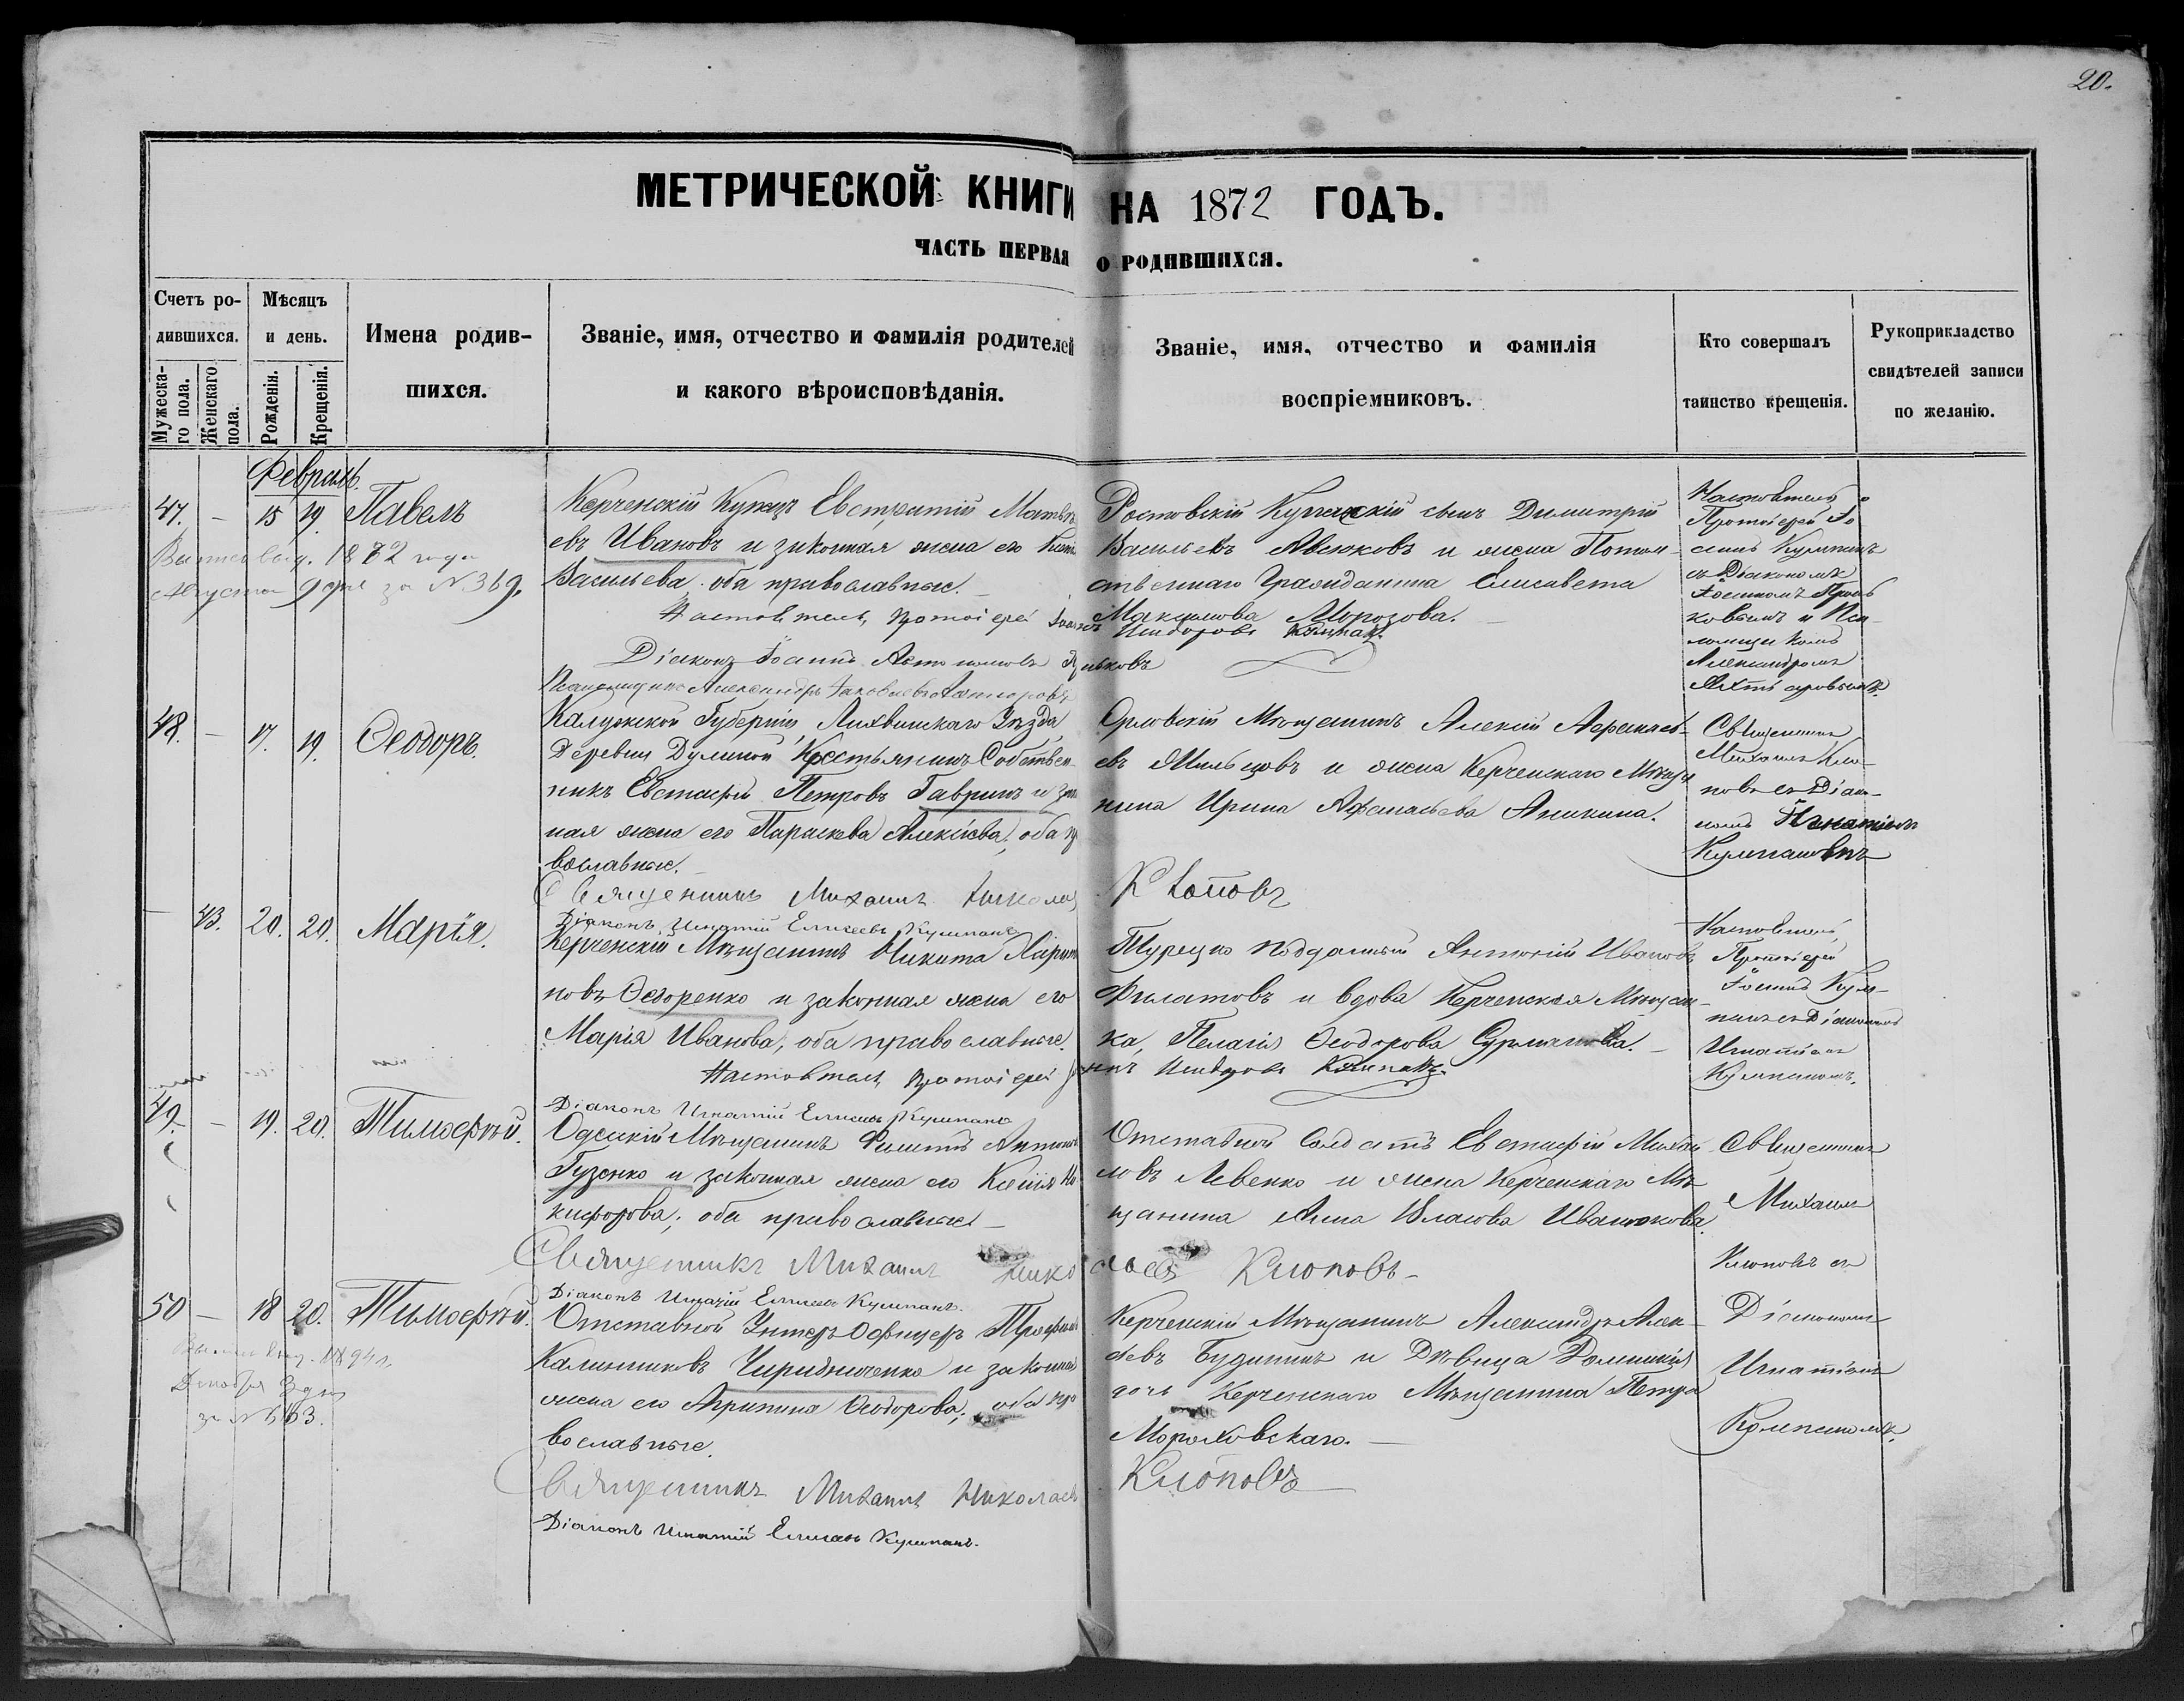 20.
МЕТРИЧЕСКОЙ КНИГИ НА 1872 ГОДЪ.
ЧАСТЬ ПЕРВАЯ О РОДИВШИХСЯ.
Счетъ ро-
дившихся.
Мужеска-
го пола.
Женскаго
пола.
Мѣсяцъ
и день.
Рожденія.
Крещенія.
Имена родив-
шихся.
Званіе, имя, отчество и фамилія родителей
и какого вѣроисповѣданія.
Званіе, имя, отчество и фамилія
воспріемниковъ.
Кто совершалъ
таинство крещенія.
Рукоприкладство
свидѣтелей записи
по желанію.
Февраль.
47. — 15 19 Павелъ
1872 года
Августа 9 дня за № 369.
Керченскій Купецъ Евстратій Матвѣ
евъ Ивановъ и законная жена его
Васильева, оба православные.
Настоятель, протоіерей Іоаннъ Исидоровъ
Діаконъ Іоаннъ
Псаломщикъ Александръ
Ростовскій Купеческій сынъ Димитрій
Васильевъ и жена Потом-
ственнаго Гражданина Елисавета
Максимова Морозова.
Настоятель
Протоіерей Іо
аннъ
съ Діакономъ
Іоанномъ
ковымъ и Пса-
ломщикомъ
Александромъ
48. — 17. 19. Ѳеодоръ.
Калужской Губерніи, Лихвинскаго Уѣзда,
Деревни Крестьянинъ Собствен-
никъ Евстафій Петровъ Гавринъ и закон
ная жена его Параскева Алексіева, оба пра
вославные.
Священникъ Михаилъ Николаевъ Клоповъ
Діаконъ Игнатій Елисеевъ Кулипанъ
Орловскій Мѣщанинъ Алексій
евъ Мильцовъ и жена Керченскаго Мѣща
нина Ирина Афанасьева Аникина.
Священникъ
Михаилъ Кло-
повъ съ Діако-
номъ Игнатіемъ
— 43. 20. 20. Марія.
Керченскій Мѣщанинъ Никита Харито
новъ Ѳедоренко и законная жена его
Марія Иванова, оба православные.
Настоятель, протоіерей Іоаннъ Исидоровъ
Діаконъ Игнатій Елисеевъ Кулипанъ
Турецко подданный Антоній Ивановъ
Филатовъ и вдова Керченская Мѣщан-
ка, Пелагія Ѳеодорова
Настоятель,
Протоіерей
Іоаннъ
съ Діакономъ
Игнатіемъ
49. — 19. 20. Тимоѳей.
Одесскій Мѣщанинъ Филиппъ Антоновъ
Гузенко и законная жена его Ксенія Ни
кифорова, оба православные
Священникъ Михаилъ Николаевъ Клоповъ
Діаконъ Игнатій Елисеевъ Кулипанъ.
Отставной Солдатъ Евстафій Михай
ловъ Левенко и жена Керченскаго Мѣ-
щанина Анна Власова Иванюкова.
Священникъ
Михаилъ
Клоповъ съ
Діакономъ
Игнатіемъ
50 — 18 20. Тимоѳей.
Декабря 3 дня
за № 563.
Отставной Унтеръ Офицеръ Трофимъ
Калинниковъ Чиридниченко и законная
жена его Агрипина Ѳеодорова, оба пра
вославные.
Священникъ Михаилъ Николаевъ Клоповъ
Діаконъ Игнатій Елисеевъ Кулипанъ.
Керченскій Мѣщанинъ Александръ Алек-
сѣевъ и Дѣвица Домникія
дочь Керченскаго Мѣщанина Петра
Мороховскаго.